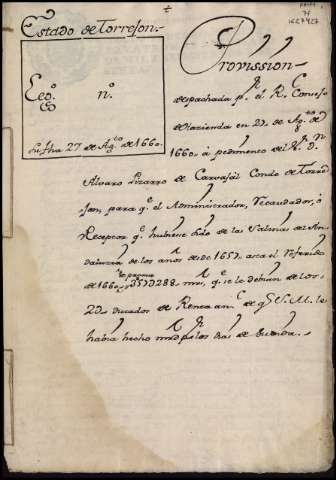 Estado de Torrejon.
Leg.º n.º
Su fha 27 de Ag.to de 1660.
Provission
despachada p.r el R. Consejo
de Hazienda en 27 de Ag.to de
1660 á pedimento del S.r D.n
Alvaro Pizarro de Carvajal Conde de Torre
jon, para q.e el Administrador, Recaudador, ó
Receptor q.e hubiese sido de las Salinas de An
dalucia de los años de 1657 aca el referido
de 1660, 357U288 mrs, q.e se le debian de los
2U ducados de Renta an.l de q.e S. M. le
había hecho mrd por los dias de su vida.